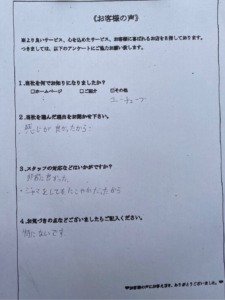 《お客様の声》
より良いサービス、心を込めたサービス、お客様に喜ばれるお店を目指しております。
つきましては、以下のアンケートにご協力お願い致します。
1.当社を何でお知りになりましたか?
□ホームページ □ご紹介 ☑その他
ユーチューブ
2.当社を選んだ理由をお聞かせ下さい。
感じが良かったから
3.スタッフの対応などはいかがですか?
非常に良かった
4.お気づきの点などございましたらご記入ください。
特にないです
お客様の声にお答え頂き、ありがとうございました。